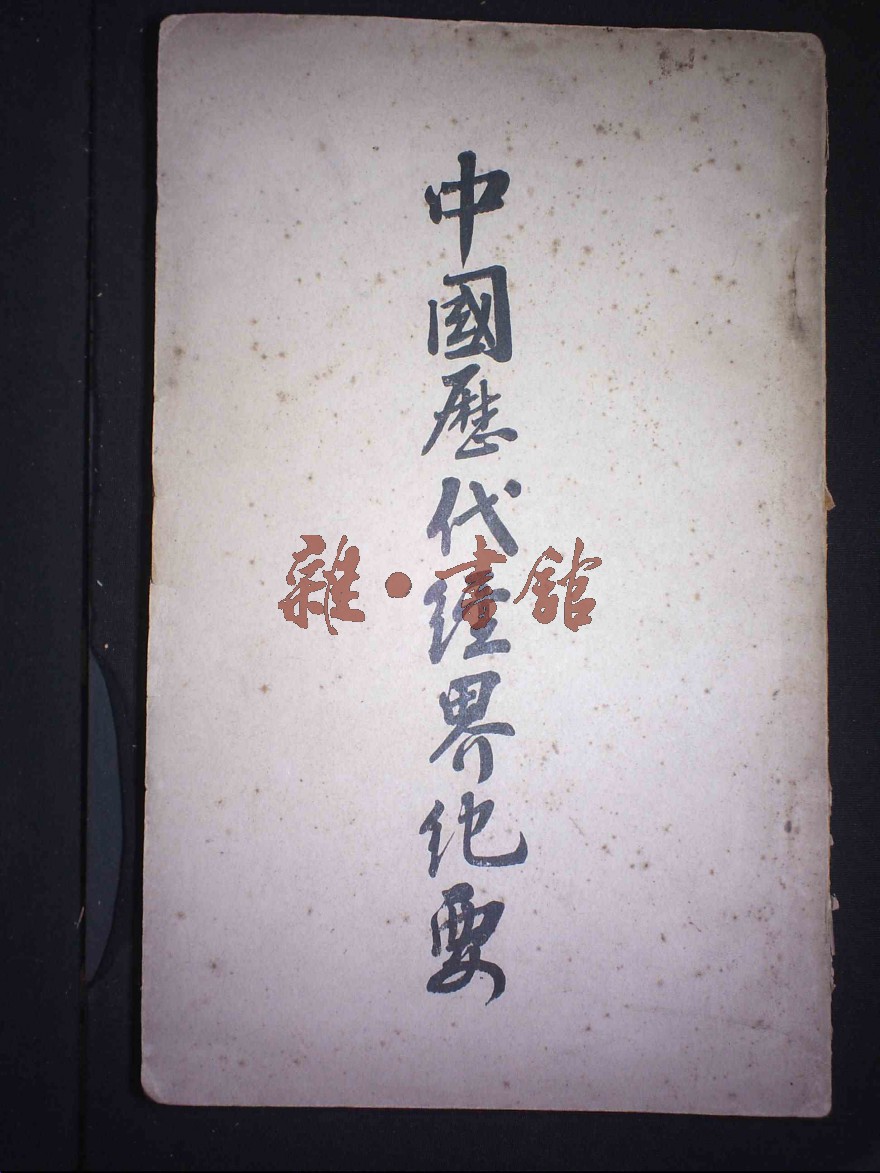 中國歷代經界紀要
雜·書館